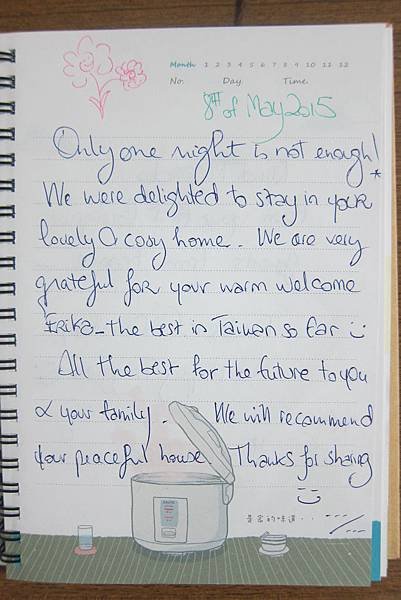 Month 1 2 3 4 5 6 7 8 9 10 11 12
No. Day. Time.
8TH of May 2015
Only one night is not enough!
We were delighted to stay in your
lovely & cosy home. We are very
grateful for your warm welcome
Erika - the best in Taiwan so far
All the best for the future to you
& your family. We will recommend
your peaceful house. Thanks for sharing
的味道..